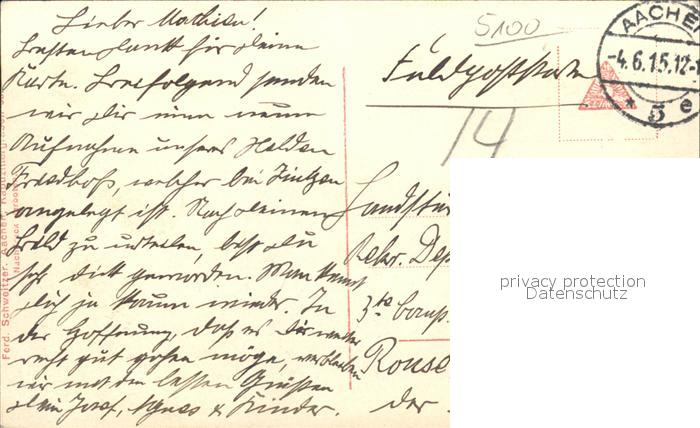 Lieber Mathieu!
Besten Dank für Deine
Karte. Beifolgend senden
wir Dir eine neue
Aufnahme unseres Helden
Friedhofs, welcher bei
angelegt ist. Nach deinem
Bild zu urteilen, bist du
sehr dick geworden. Man kennt
dich ja kaum wieder. In
der Hoffnung, daß es Dir weiter
recht gut gehen möge, verbleiben
wir mit den besten Grüßen
dein Josef, Agnes & Kinder.
5100
Feldpostkarte
14
AACHEN
-4.6.15.12-1
* 5 e
Landstu
Rekr. Dep
3te Comp.
Rouse
der
privacy protection
Datenschutz
Ferd. Schweitzer, Aachen